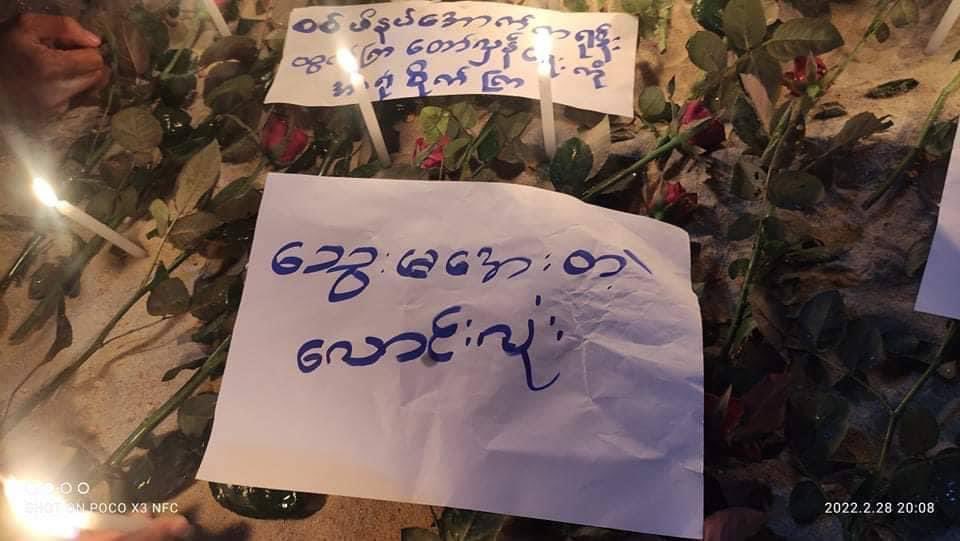 စစ်ဖိနပ်အောက်က ရုန်း
ထွက်ကြ တော်လှန်ရေးကို
အားစိုက်ကြ
သွေးမအေးစတမ်း
လောင်းလုံး
SHOT ON POCO X3 NFC
2022.2.28 20:08